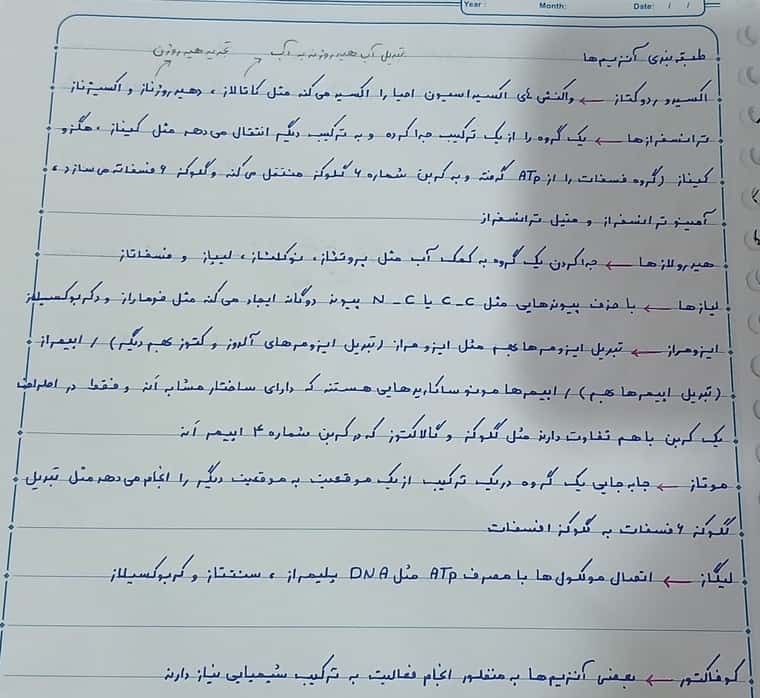 Year: Month: Date: / /
تبدیل آب هیدروژنه به آب تجزیه هیدروژن
طبقه بندی آنزیم ها
اکسیدو ردوکتاز ← واکنش های اکسیداسیون احیا را اکسید می کند مثل کاتالاز ، دهیدروژناز و اکسیژناز
ترانسفرازها ← یک گروه را از یک ترکیب جدا کرده و به ترکیب دیگر انتقال می دهد مثل کیناز ، هگزو
کیناز (گروه فسفات را از ATP گرفته و به کربن شماره ۶ گلوکز منتقل می کند و گلوکز ۶ فسفات می سازد) ،
آمینو ترانسفراز و متیل ترانسفراز
هیدرولازها ← جدا کردن یک گروه به کمک آب مثل پروتئاز ، نوکلئاز ، لیپاز و فسفاتاز
لیازها ← با حذف پیوندهایی مثل C-C یا N-C پیوند دوگانه ایجاد می کند مثل فوماراز و دکربوکسیلاز
ایزومراز ← تبدیل ایزومرها بهم مثل ایزومراز (تبدیل ایزومرهای آلدوز و کتوز بهم دیگر) / اپیمراز
(تبدیل اپیمرها بهم) / اپیمرها مونوساکاریدهایی هستند که دارای ساختار مشابه اند و فقط در اطراف
یک کربن با هم تفاوت دارند مثل گلوکز و گالاکتوز که در کربن شماره ۴ اپیمر اند
موتاز ← جابه جایی یک گروه در یک ترکیب از یک موقعیت به موقعیت دیگر را انجام می دهد مثل تبدیل
گلوکز ۶ فسفات به گلوکز ۱ فسفات
لیگاز ← اتصال مولکول ها با مصرف ATP مثل DNA پلیمراز ، سنتتاز و کربوکسیلاز
کوفاکتور ← بعضی آنزیم ها به منظور انجام فعالیت به ترکیب شیمیایی نیاز دارند